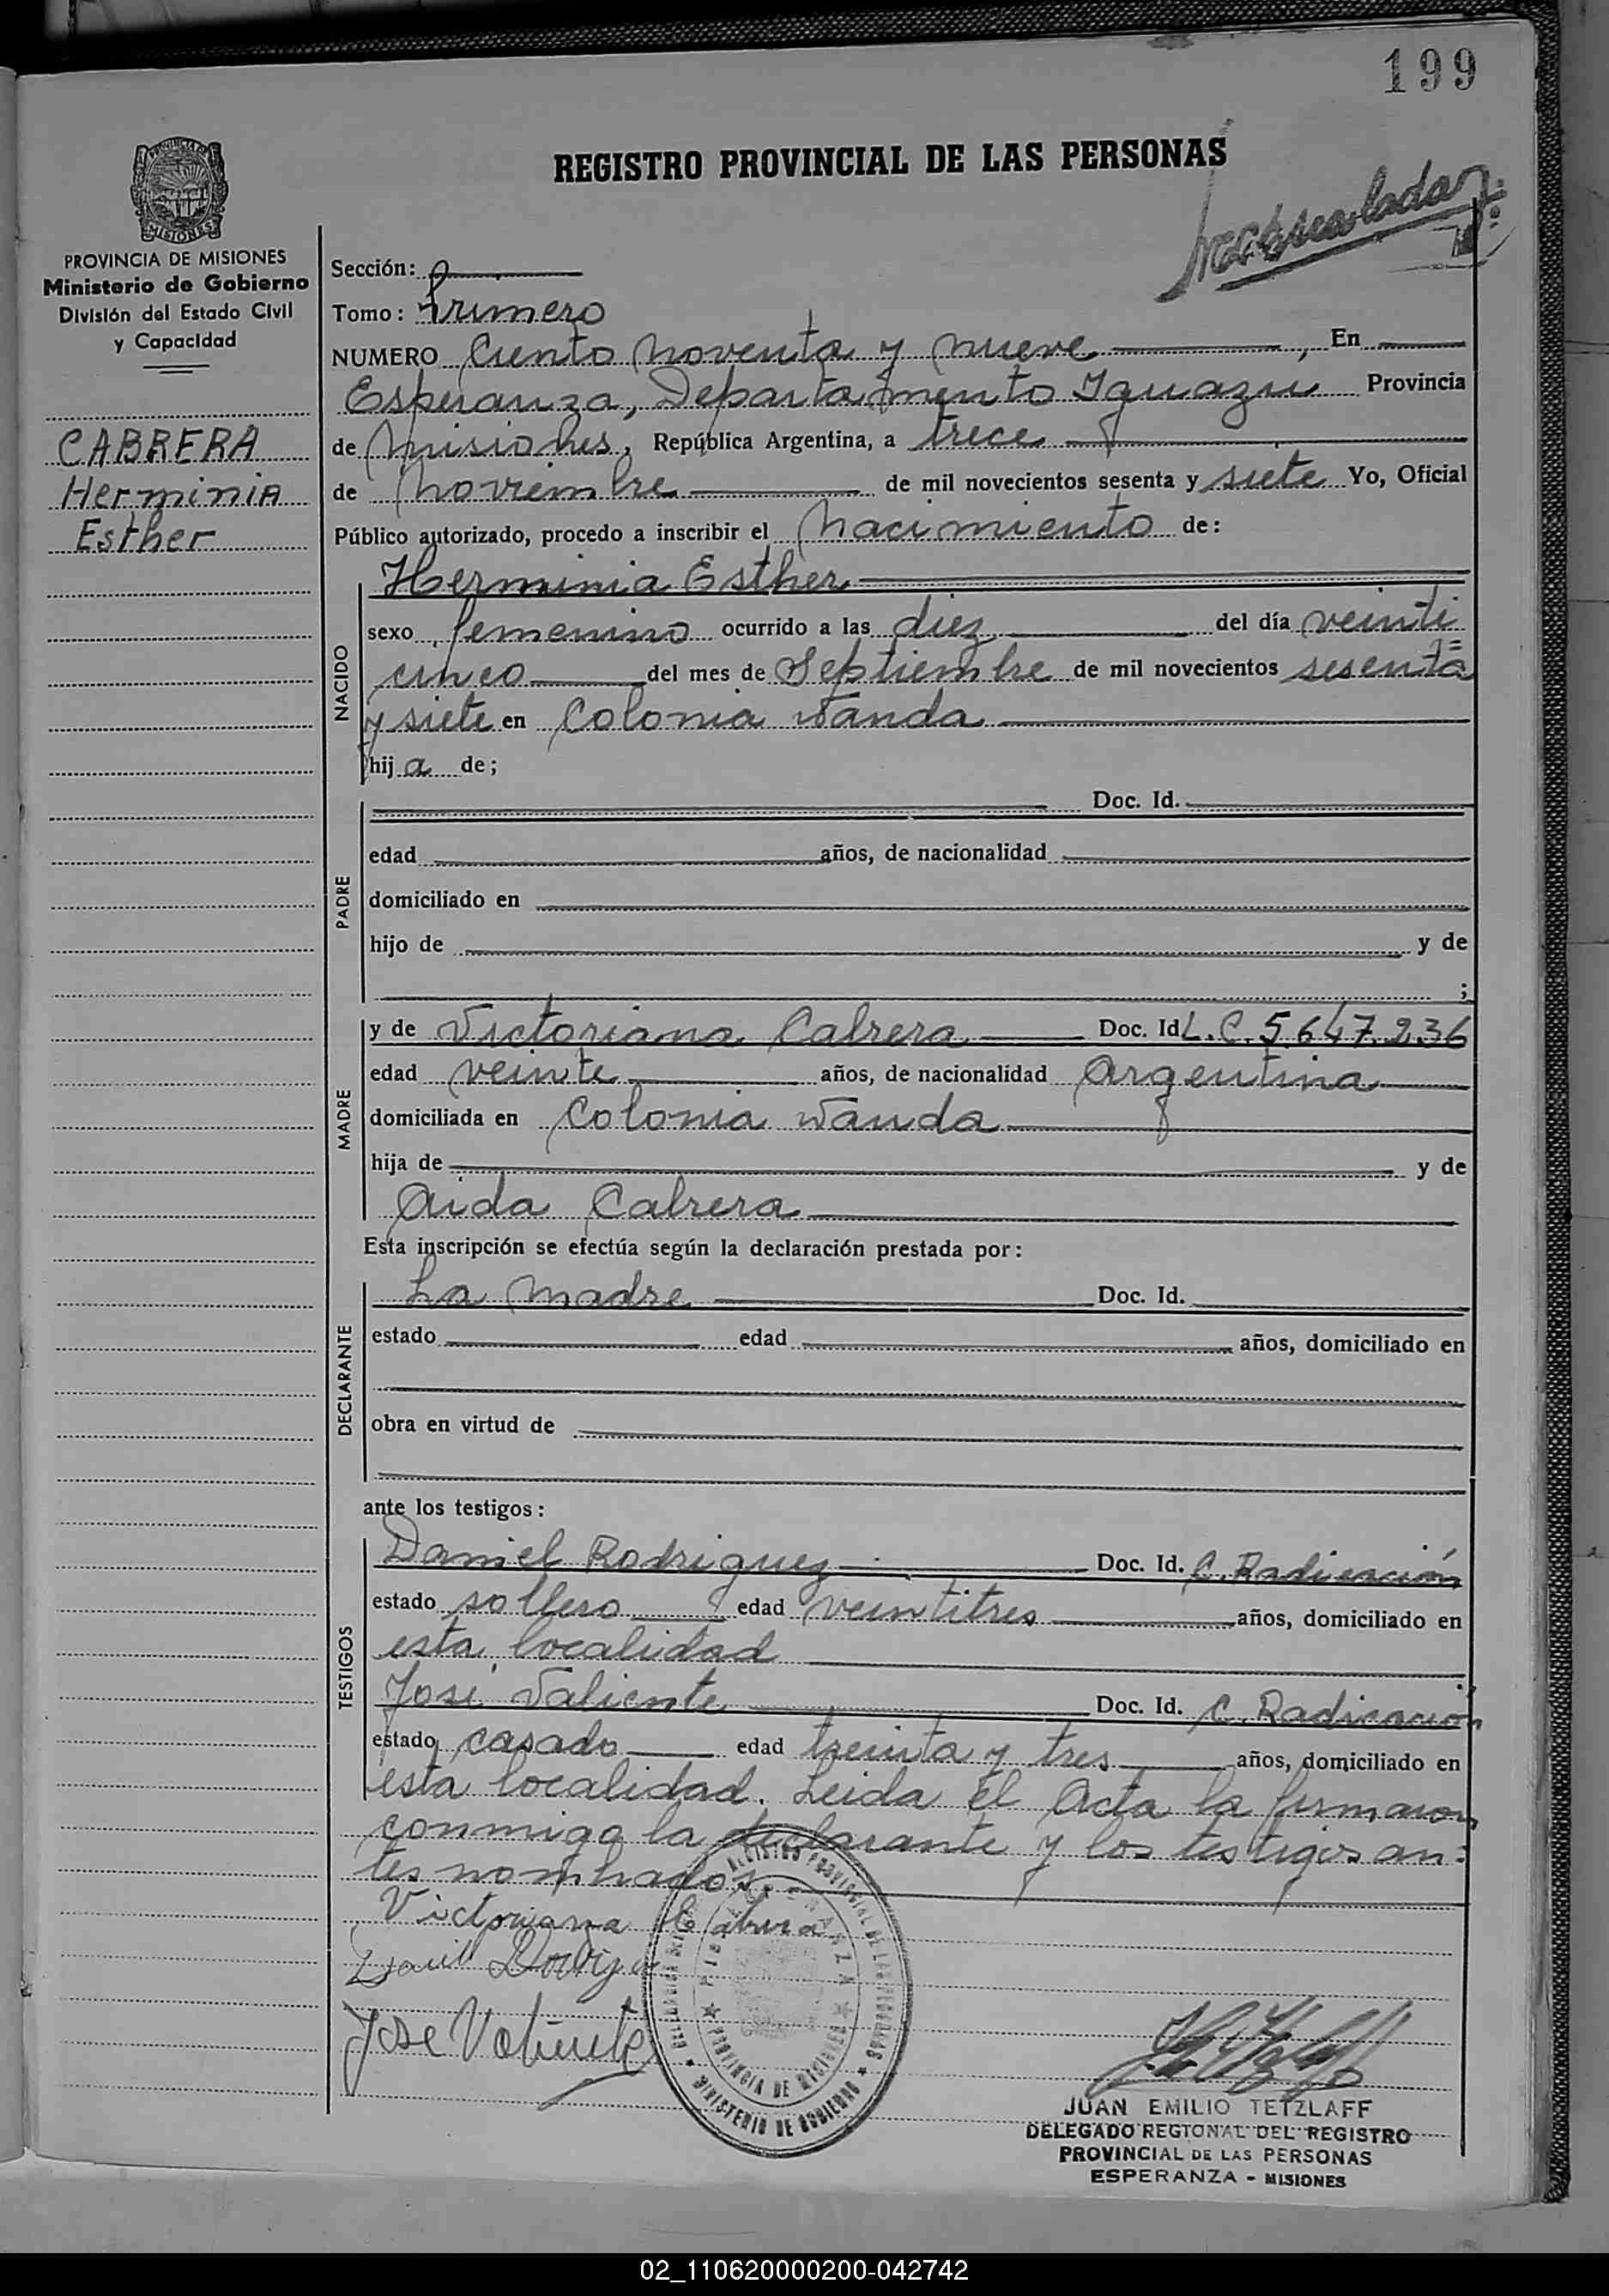 199
REGISTRO PROVINCIAL DE LAS PERSONAS
PROVINCIA DE MISIONES
Ministerio de Gobierno
División del Estado Civil
y Capacidad
CABRERA
Herminia
Esther
Sección:
Tomo: Primero
NUMERO Ciento noventa y nueve, En
Esperanza, Departamento Iguazú Provincia
de Misiones, República Argentina, a trece
de noviembre de mil novecientos sesenta y siete Yo, Oficial
Público autorizado, procedo a inscribir el nacimiento de:
Herminia Esther
NACIDO
sexo femenino ocurrido a las diez del día veinti
cinco del mes de Septiembre de mil novecientos sesenta
y siete en Colonia Wanda
hija de;
PADRE
Doc. Id.
edad años, de nacionalidad
domiciliado en
hijo de y de
;
MADRE
y de Victoriana Cabrera Doc. Id L.C. 5.647.236
edad veinte años, de nacionalidad Argentina
domiciliada en Colonia Wanda
hija de y de
Aida Cabrera
Esta inscripción se efectúa según la declaración prestada por:
DECLARANTE
La madre Doc. Id.
estado edad años, domiciliado en
obra en virtud de
ante los testigos:
TESTIGOS
Daniel Rodriguez Doc. Id. C. Radicación
estado soltero edad veintitres años, domiciliado en
esta localidad
José Valiente Doc. Id. C. Radicación
estado casado edad treinta y tres años, domiciliado en
esta localidad. Leida el Acta la firmaron
conmigo la declarante y los testigos an=
tes nombrados
Victoriana Cabrera
Jose Valiente
REGISTRO PROVINCIAL DE LAS PERSONAS
MINISTERIO DE GOBIERNO
PROVINCIA DE MISIONES
JUAN EMILIO TETZLAFF
DELEGADO REGIONAL DEL REGISTRO
PROVINCIAL DE LAS PERSONAS
ESPERANZA - MISIONES
02_110620000200-042742